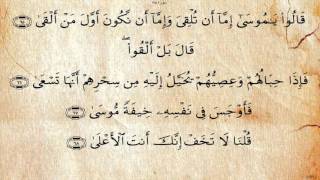 قَالُوا۟ يَـٰمُوسَىٰٓ إِمَّآ أَن تُلْقِىَ وَإِمَّآ أَن نَّكُونَ أَوَّلَ مَنْ أَلْقَىٰ ﴿٦٥﴾
قَالَ بَلْ أَلْقُوا۟ ۖ
فَإِذَا حِبَالُهُمْ وَعِصِيُّهُمْ يُخَيَّلُ إِلَيْهِ مِن سِحْرِهِمْ أَنَّهَا تَسْعَىٰ ﴿٦٦﴾
فَأَوْجَسَ فِى نَفْسِهِۦ خِيفَةً مُّوسَىٰ ﴿٦٧﴾
قُلْنَا لَا تَخَفْ إِنَّكَ أَنتَ ٱلْأَعْلَىٰ ﴿٦٨﴾